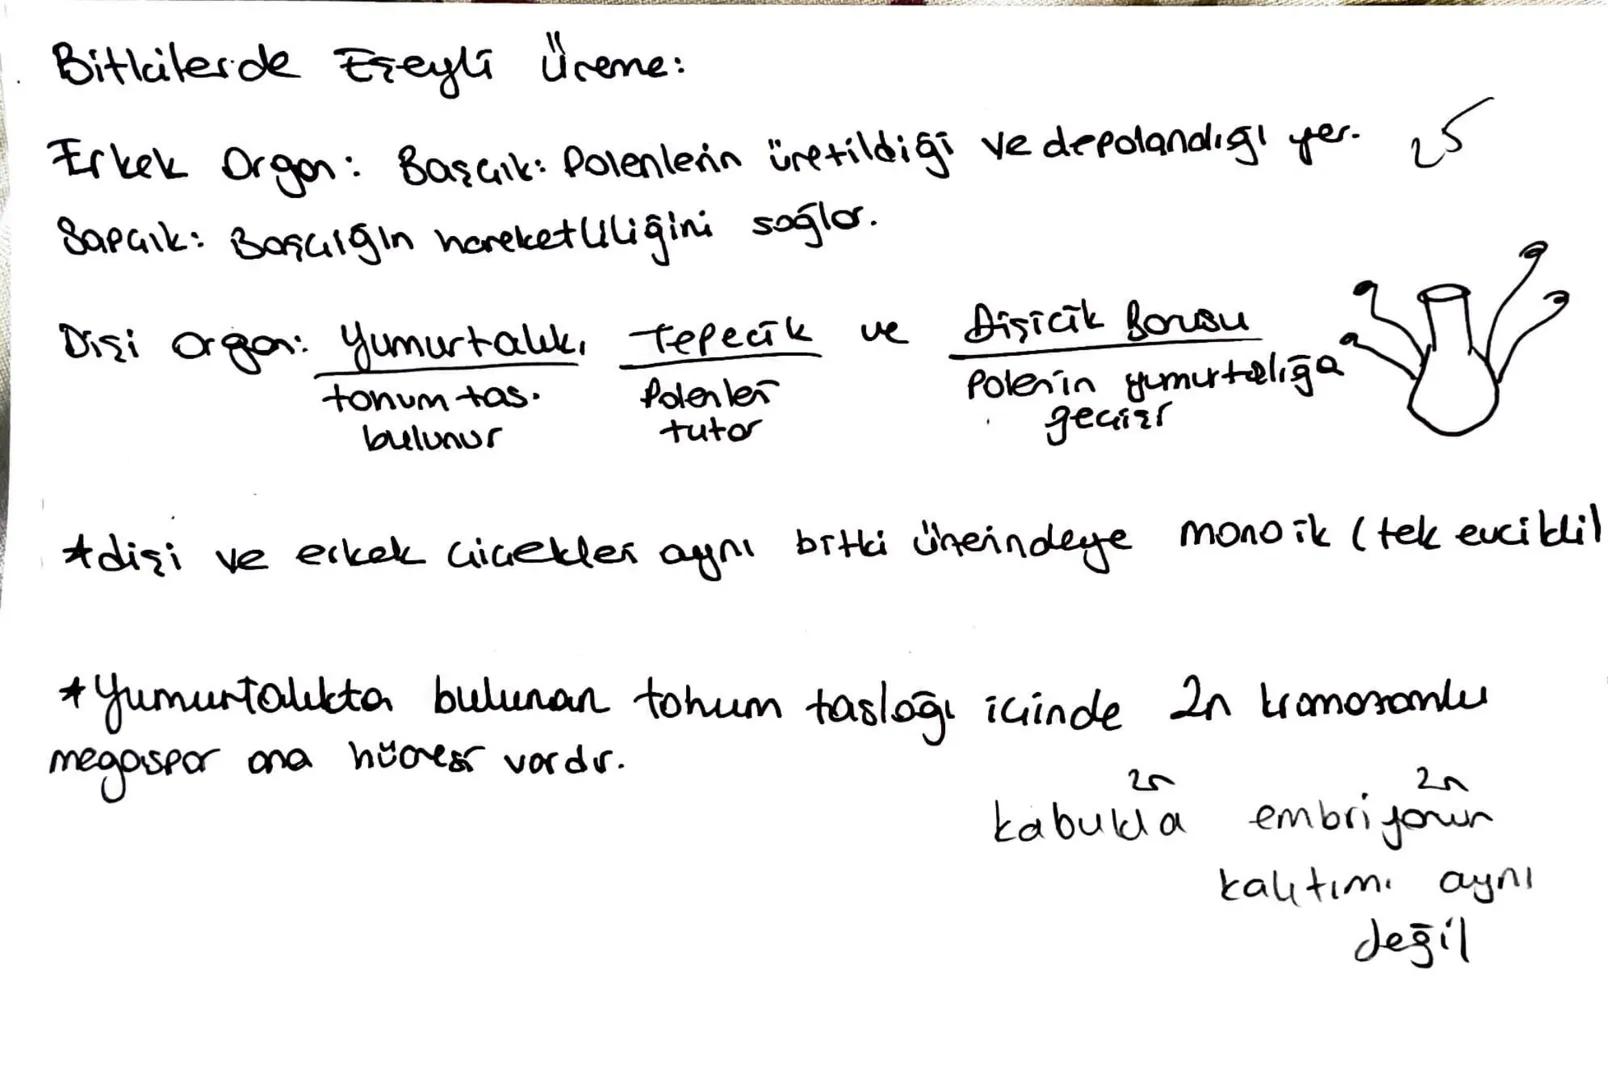 Bitkilerde Eşeyli Üreme:
Erkek Organ: Başçık: Polenlerin üretildiği ve depolandığı yer. 25
Sapçık: Başçığın hareketliliğini sağlar.
Dişi organ: Yumurtalık, Tepecik ve Dişicik Borusu
tohum tas. bulunur
Polenleri tutar
Polenin yumurtalığa geçişi
*dişi ve erkek çiçekler aynı bitki üzerindeyse monoik (tek evcikli)
*Yumurtalıkta bulunan tohum taslağı içinde 2n kromozomlu
megaspor ana hücresi vardır.
2n 2n
kabukla embriyonun
kalıtımı aynı
değil